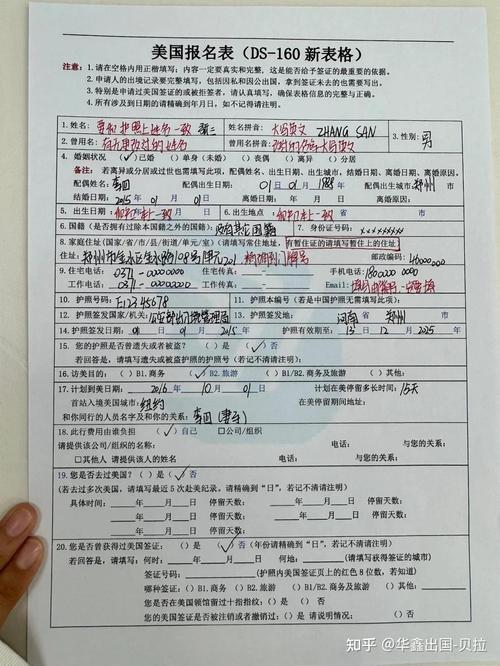 美国报名表（DS-160 新表格）
注意：1.请在空格内用正楷填写；内容一定要真实和完整，这是能否给予签证的最重要的依据。
2.申请人的出境记录要完整填写，包括因私和因公出国，拿到签证未去的也需要写出。
3.特别是申请过美国签证的或被拒签者，请认真填写，确保表格信息的完整与正确。
4.所有涉及到日期的请精确到年月日，如不记得请注明。
1.姓名：要和护照上姓名一致 张三 姓名拼音：大写英文 ZHANG SAN 3.性别：男
2.曾用名：有无更改过的姓名 曾用名拼音：
4.婚姻状况 （✓）已婚 （ ）单身（未婚） （ ）丧偶 （ ）离异 （ ）分居
备注：若离异或分居或过世也需填写此项，配偶姓名、出生日期、出生城市，结婚日期、离婚日期、离婚原因。
配偶姓名：李四 配偶出生日期：01日 01月 1988年 配偶出生城市：郑州 市
结婚日期：2015年 01月 01日 离婚日期： 离婚原因：
5.出生日期：和护照上一致 6.出生地点：和护照上一致 省 市
6.国籍（是否拥有过除本国籍之外的国籍）：没有其它国籍 7.身份证号：xxxxxxxxx
8.家庭住址（国家/省/市/县/街道/单元/室）（请填写常住地址，有暂住证的请填写暂住上的住址）
住址：郑州市金水区金水路108号1单元201 精确到门牌号 邮政编码：46000000
9.住宅电话：0371-00000000 住宅传真：- 手机电话：1800000 0000
工作电话：0371-00000000 工作传真：- Email:
10.护照号码：E12345678 11.护照本编号（若是中国护照无需填此项）：
12.护照签发国家/机关：公安部出入境管理局 13.护照签发地：河南省 郑州市
14.护照签发日期：01日 01月 2015年 护照有效期至：13日 12月 2025年
15.您的护照是否曾遗失或者被盗？ （ ）是 （✓）否
若回答是，请填写遗失或被盗护照的护照号（若记不清请注明）：
16.访美目的：（ ）B1.商务 （✓）B2.旅游 （ ）B1/B2.商务及旅游 （ ）其他：
17.计划到美日期：2016年 10月 01日 计划在美停留时间：15天
首站入境美国城市：纽约 在美停留期间地址：
和你同行的人员名字及和你的关系：李四（妻子）
18.此行费用由谁负担 （✓）自己 □公司/组织
请提供该公司/组织的名称： 电话： 与您的关系：
□其他人 请提供该人的姓名 电话： 与您的关系：
19.您是否去过美国？ （ ）是（✓）否
（若去过多次美国，请填写最近 5 次赴美纪录。请精确到“日”，若记不清请注明）
具体时间：____年____月____日 停留天数： ____年____月____日 停留天数：
____年____月____日 停留天数： ____年____月____日 停留天数：
____年____月____日 停留天数：
20.您是否曾获得过美国签证： （ ）是 （✓）否（年份请精确到“日”，若不记清请注明）
若回答是，请填写：何时： 年 月 日 何地： （请填写获得签证的城市）
签证号码： （护照内美国签证页上的红色 8 位数，若知道）
哪种签证：（ ）B1.商务 （ ）B2.旅游 （ ）B1/B2.商务及旅游 （ ）其他：
您是否在美国领馆留过十指指纹：（ ）是（ ）否
您的美国签证是否被注销或者撤销过：（ ）是 请说明情况： （ ）否
知乎 @华鑫出国-贝拉